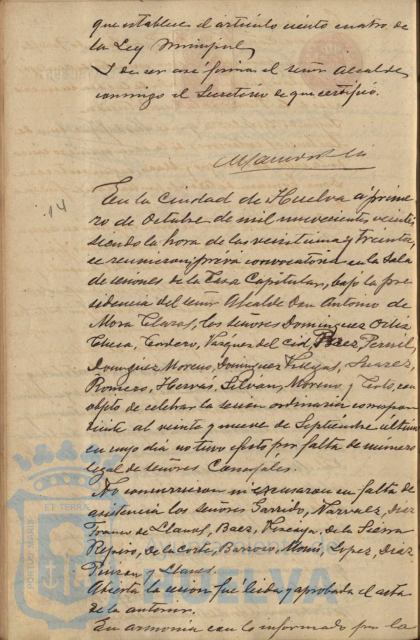 que establece el artículo ciento cuatro de
la Ley Municipal
I de ser así firma el señor Alcalde
conmigo el Secretario de que certifico.
14
En la Ciudad de Huelva a prime
ro de Octubre de mil novecientos veinte
siendo la hora de las veintiuna y treinta,
se reunieron, previa convocatoria en la Sala
de sesiones de la Casa Capitular, bajo la pre
sidencia del señor Alcalde Don Antonio de
Mora Claros, los señores Dominguez Ortiz
Checa, Cordero, Vázquez del Cid, Perez,
Dominguez Moreno, Dominguez Suarez,
Romero, Hervas, Silvan, Moreno y con
objeto de celebrar la sesion ordinaria correspon
diente al veinte y nueve de Septiembre ultimo
en cuyo dia no tuvo efecto por falta de número
legal de señores Concejales.
No concurrieron ni excusaron su falta de
asistencia los señores Garrido, Narvaez, Diez
Franco de Llanos, Baez, Vizcaya, de la Sierra
de la Corte, Barroso, Lopez, Diaz
y Llanes.
Abierta la sesion fué leida y aprobada el acta
de la anterior.
En armonia con lo informado por la
ET TERRA
PORTUS MARIS
HUELVA